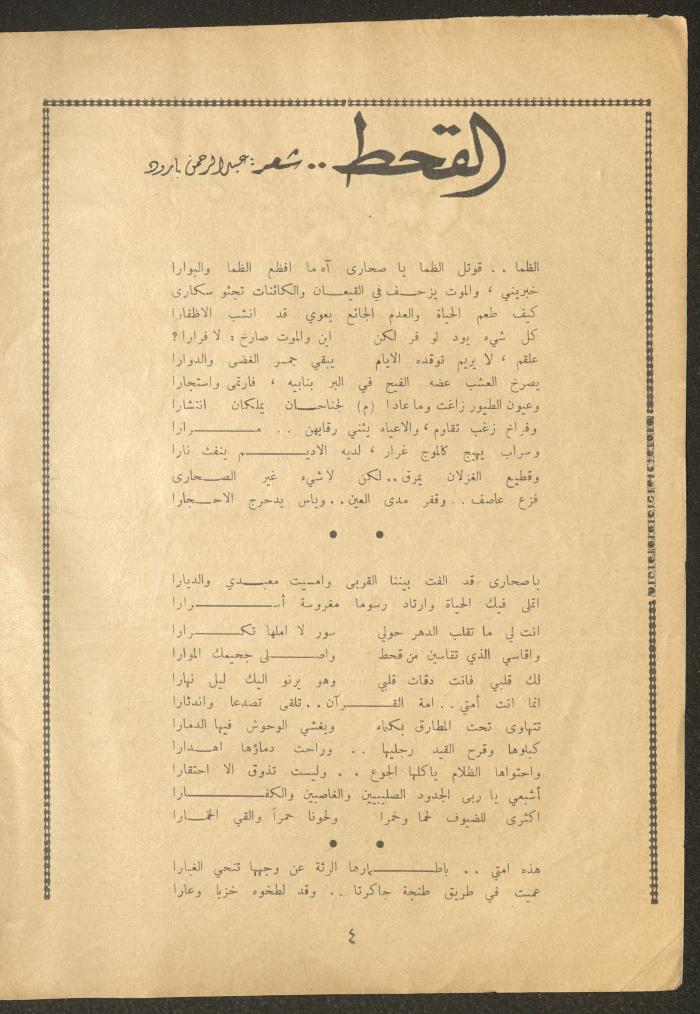 القحط .. شعر : عبدالرحمن بارود
الظما . . قوتل الظما يا صحارى آه ما افظع الظما والبوارا
خبريني ، والموت يزحـــف في القيعـــان والكائنات تجثو سكارى
كيف طعم الحياة والعدم الجائع يعوي قد انشب الاظفارا
كل شيء يود لو فر لكن اين والموت صارخ : لا فرارا ؟
علقم ، لا يريم توقده الايام يبقي جمـر الغضى والدوارا
يصرخ العشب عضه القيح في البر بنابيه ، فارتمى واستجارا
وعيون الطيور زاغت وما عادا (م) لجناحـــان يملكان انتشارا
وفراخ زغب تقاوم ، والاعياء يثني رقابهن . . مـــــرارا
وسراب يهيج كالموج غرار ، لديه الاديـــــم ينفث نارا
وقطيع الغزلان يمرق . . لكن لاشيء غير الصـحارى
فزع عاصف . . وقفر مدى العين . . وياس يدحرج الاحـجارا
ياصحارى قد الفت بيننا القربى وامسيت معبـــدي والديارا
اتملى فيك الحياة وارتاد رسوما مغروسة أســـــرارا
انت لي ما تقلب الدهر حولي سور لا املها تكــــرارا
واقاسي الذي تقاسين من قحط واصـــلى جحيمك الموارا
لك قلبي فانت دقات قلبي وهو يرنو اليك ليل نهارا
انما انت أمتي . . امة القــــرآن . . تلقى تصدعا واندثارا
تتهاوى تحت المطارق بكماء ويغشي الوحوش فيها الدمارا
كبلوها وقرح القيد رجليها . . وراحت دماؤها اهــدارا
واحتواها الظلام ياكلها الجوع . . وليست تذوق الا احتقارا
أشبعي يا ربى الجدود الصليبيين والغاصبين والكفـــــارا
اكثرى للضيوف لحما وخمرا ولحونا حمراً والقي الخمــارا
هذه امتي . . باطـــــمارها الرثة عن وجهها تنحي الغبارا
عميت في طريق طنجة جاكرتا . . وقد لطخوه خزيا وعارا
٤